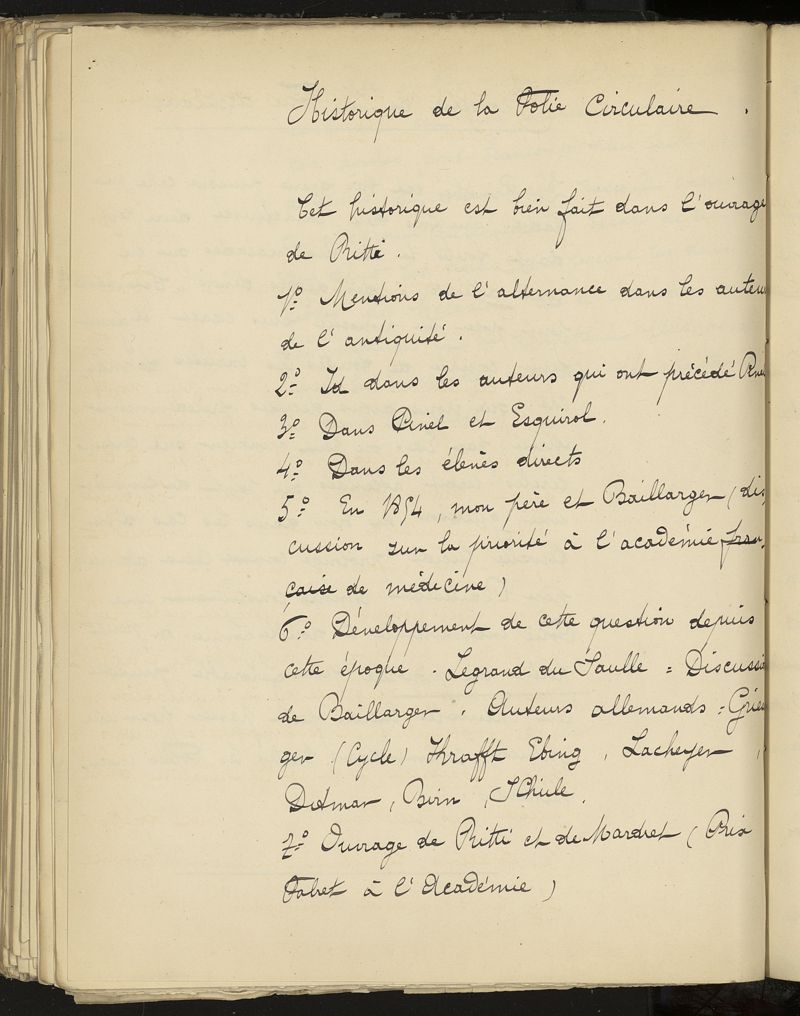 Historique de la Folie Circulaire.
Cet historique est bien fait dans l'ouvrage
de Ritti.
1º Mentions de l'alternance dans les auteu
de l'antiquité.
2º Id dans les auteurs qui ont précédé Pinel
3º Dans Pinel et Esquirol.
4º Dans les élèves directs
5º En 1854, mon père et Baillarger (dis
cussion sur la priorité à l'académie fran
çaise de médicine)
6º Développement de cette question depuis
cette époque. Legrand du Saulle = Discussi
de Baillarger. Auteurs allemands = Gries
ger (Cycle) Khrafft Ebing, Lacheyer,
Ditmar, Birn, Schüle.
7º Ouvrage de Ritti et de Mardret (Prix
Falret à l'Académie)